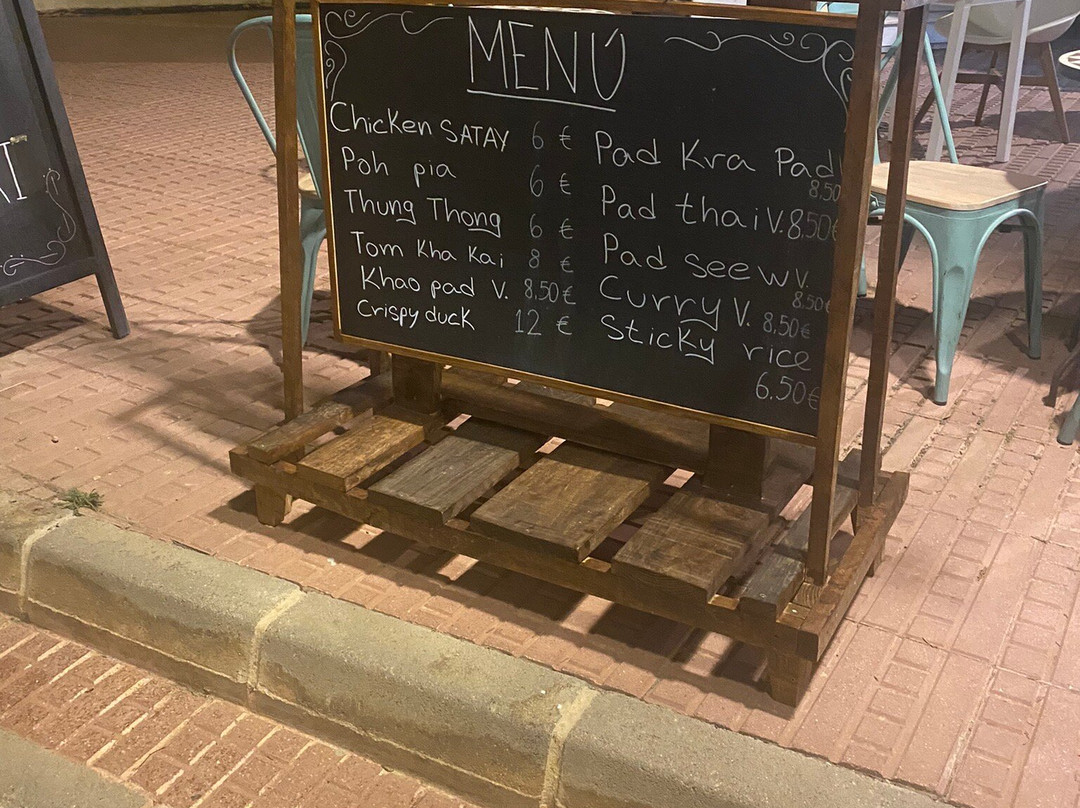 MENÚ
Chicken SATAY 6 €
Poh pia 6 €
Thung Thong 6 €
Tom Kha Kai 8 €
Khao pad V. 8.50 €
Crispy duck 12 €
Pad Kra Pad
8.50
Pad thai V. 8,50€
Pad seew V.
8.50€
Curry V. 8,50€
Sticky rice
6.50€